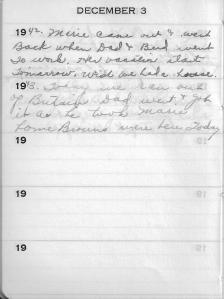 DECEMBER 3
1942. Marie came out & went
back when Dad & Bud went
to work. Her vacation start
tomorrow. Wish we had a house.
1943. Today we ran out
of Butish Dad went & got
it as he took Marie
home Browns were here Today
19
19
19